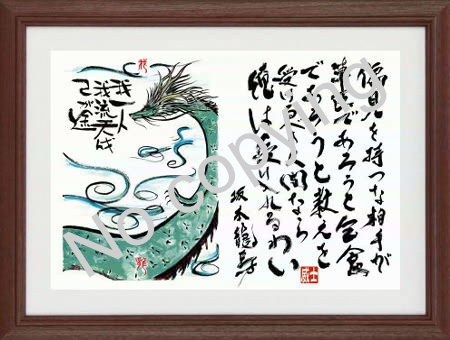 偏見を持つな相手が
幕臣であろうと乞食
であろうと教えを
人間なら
俺は受け入れるわい
坂本龍馬
我一人
我流天
己が
No copying